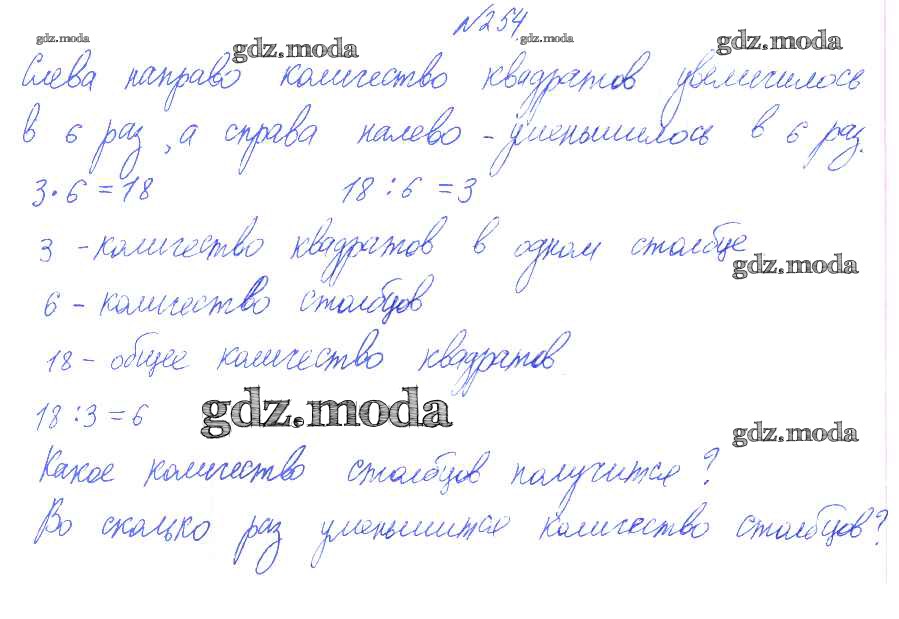 №254
gdz.moda gdz.moda gdz.moda gdz.moda
Слева направо количество квадратов увеличилось
в 6 раз, а справа налево - уменьшилось в 6 раз.
3·6=18 18:6=3
3 - количество квадратов в одном столбце
gdz.moda
6 - количество столбцов
18 - общее количество квадратов
18:3=6
gdz.moda
gdz.moda
Какое количество столбцов получится?
Во сколько раз уменьшится количество столбцов?